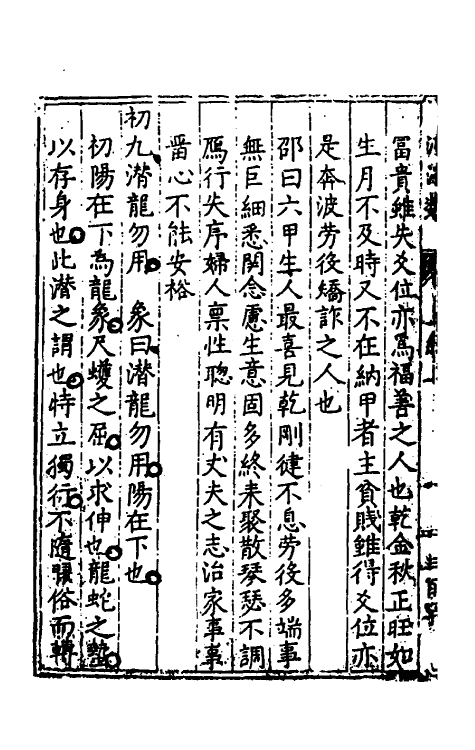 冨貴雖失爻位亦為福善之人也乾金秋正旺如
生月不及時又不在納甲者主貧賤雖得爻位亦
是奔波劳役矯詐之人也
邵曰六甲生人最喜見乾剛徤不息劳役多端事
無巨細悉関念慮生意固多終来聚散琴瑟不調
鴈行失序婦人禀性聦明有丈夫之志治家事事
畱心不能安裕
初九潜龍勿用　象曰潜龍勿用陽在下也
初陽在下為龍象尺蠖之屈以求伸也龍蛇之蟄
以存身也此潜之謂也特立獨行不隨驟俗而轉